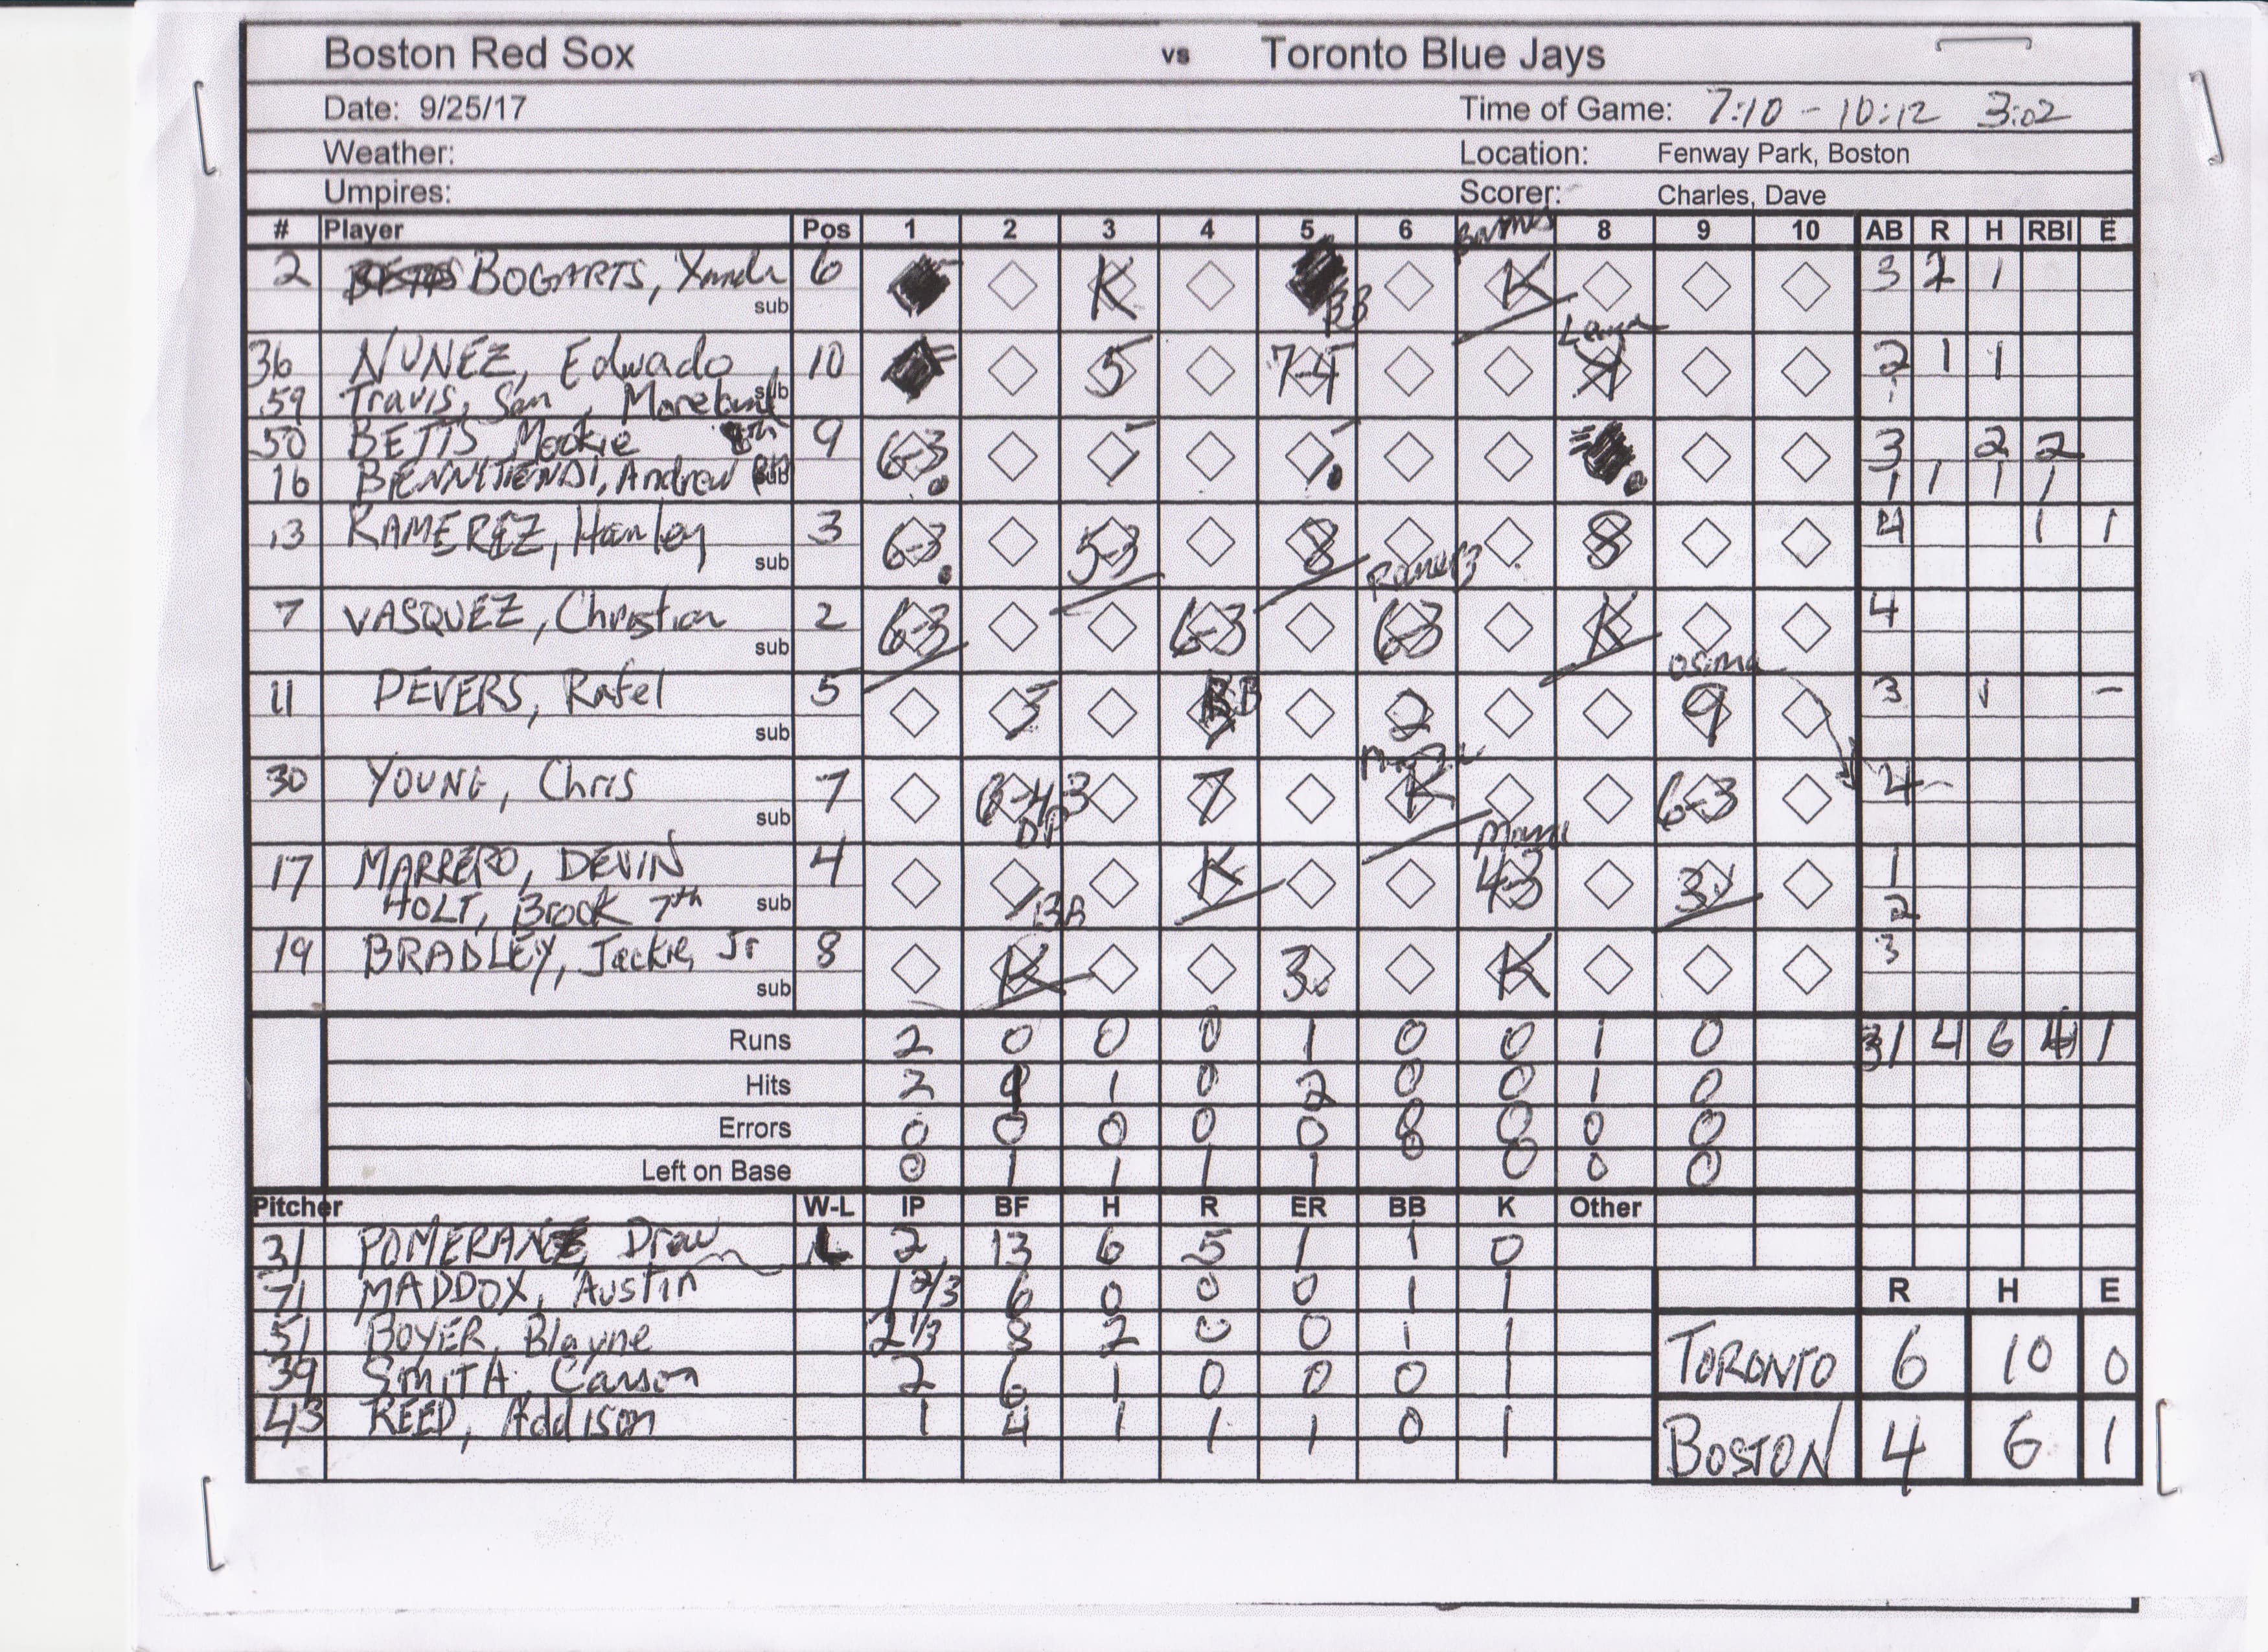 Boston Red Sox vs Toronto Blue Jays
Date: 9/25/17 Time of Game: 7:10 - 10:12 3:02
Weather: Location: Fenway Park, Boston
Umpires: Scorer: Charles, Dave
# Player Pos 1 2 3 4 5 6 Barnes 8 9 10 AB R H RBI E
2 BOGARTS, 6 K BB K 3 2 1
sub
36 NUNEZ, Edwado 10 5 7-4 K 2 1 1
59 Travis, Sam, Moreland sub
50 BETTS Mookie 8th 9 6-3 3 2 2
16 BENNITENDI, Andrew sub 1 1 1 1
13 RAMEREZ, Hanley 3 6-3 5-3 8 8 4 1 1
sub
7 VASQUEZ, Christian 2 6-3 6-3 6-3 K 4
sub
11 DEVERS, Rafel 5 BB 9 3 1 -
sub
30 YOUNG, Chris 7 6-4-3 DP 7 K 6-3 4
sub
17 MARRERO, DEVIN 4 K 4-3 1
HOLT, Brock 7th sub 2
19 BRADLEY, Jackie, Jr 8 K 3 K 3
sub
Runs 2 0 0 0 1 0 0 1 0 31 4 6 4 1
Hits 2 1 0 2 0 0 1 0
Errors 0 0 0 0 0 0 0 0 0
Left on Base 0 1 1 1 1 0 0 0
Pitcher W-L IP BF H R ER BB K Other
31 POMERANZ, Drew L 2 13 6 5 1 1 0
71 MADDOX, Austin 1 2/3 6 0 0 0 1 1
51 BOYER, Blayne 2 1/3 8 2 0 0 1 1
39 SMITH, Carson 2 6 1 0 0 0 1
43 REED, Addison 1 4 1 1 1 0 1
R H E
TORONTO 6 10 0
BOSTON 4 6 1